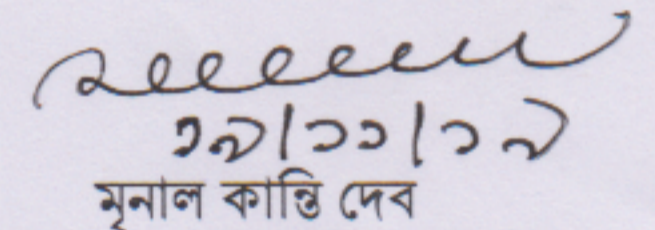 ১৯/১১/১৯
মৃনাল কান্তি দেব